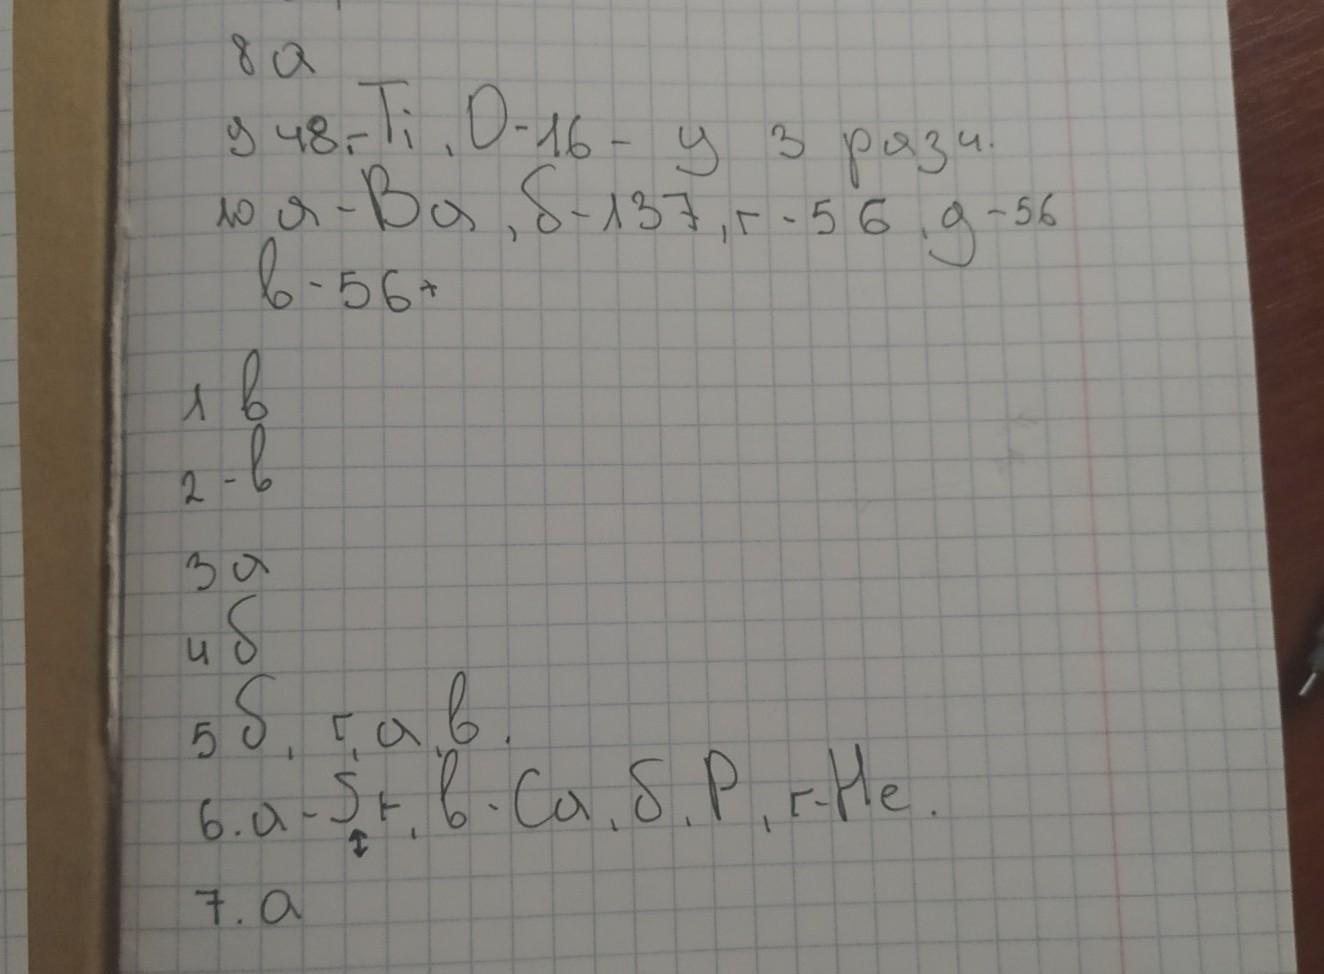 8 а
9 48-Ti, O-16- у 3 рази.
10 а-Ba, б-137, г-56, д-56
в-56+
1 в
2-в
3 а
4 б
5 б, г, а, в.
6. а-Sr, в-Ca, б. P, г-He.
7. а